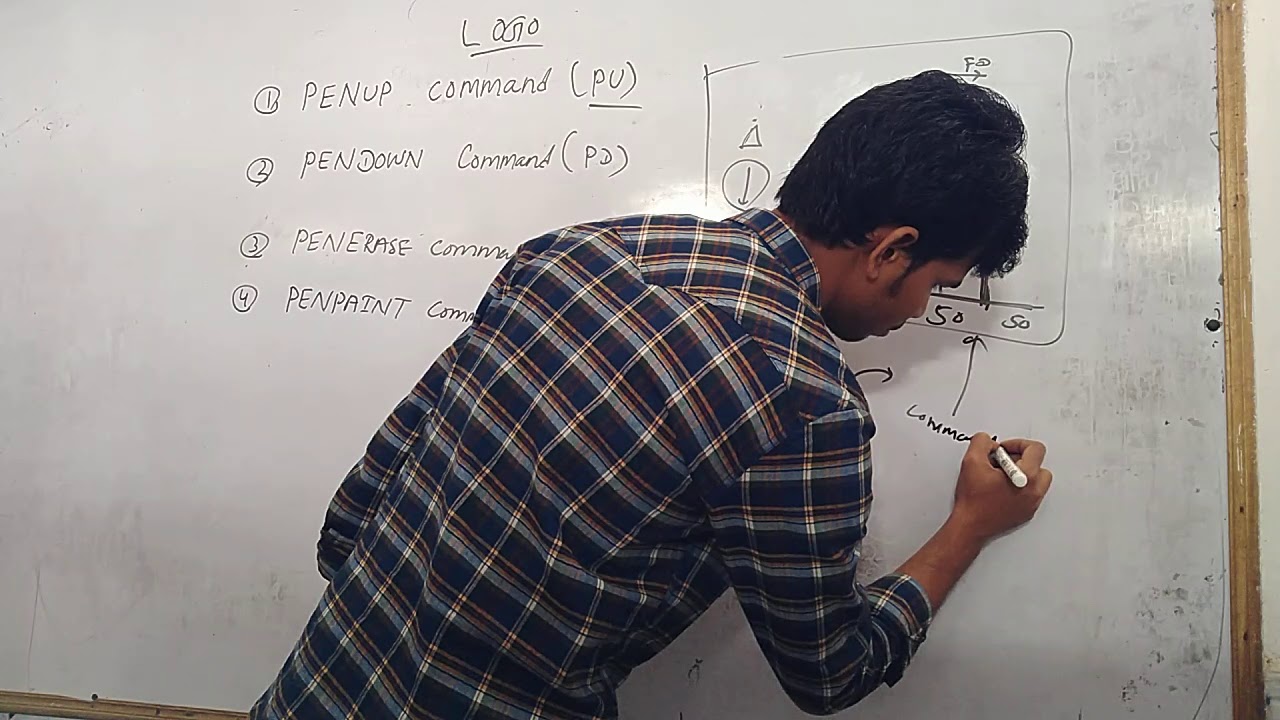 LOGO
① PENUP command (PU)
② PENDOWN Command (PD)
③ PENERASE comma
④ PENPAINT com
FD
1
50 50
Comma